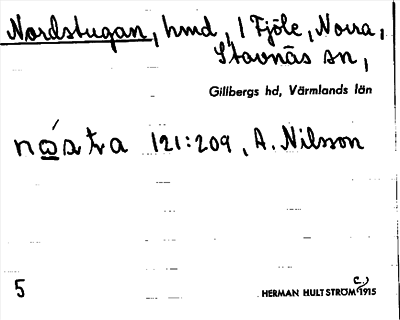 Nordstugan, hmd, 1 Fjöle, Norra,
Stavnäs sn,
Gillbergs hd, Värmlands län
121:209, A. Nilsson
5
HERMAN HULTSTRÖM c:) 1915